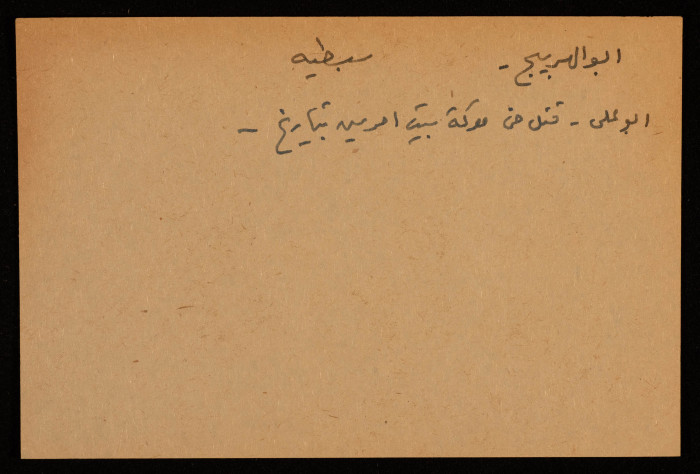 ابو الهيجا - سبطيه
ابو علي - قتل في معركة بيت امرين بتاريخ -